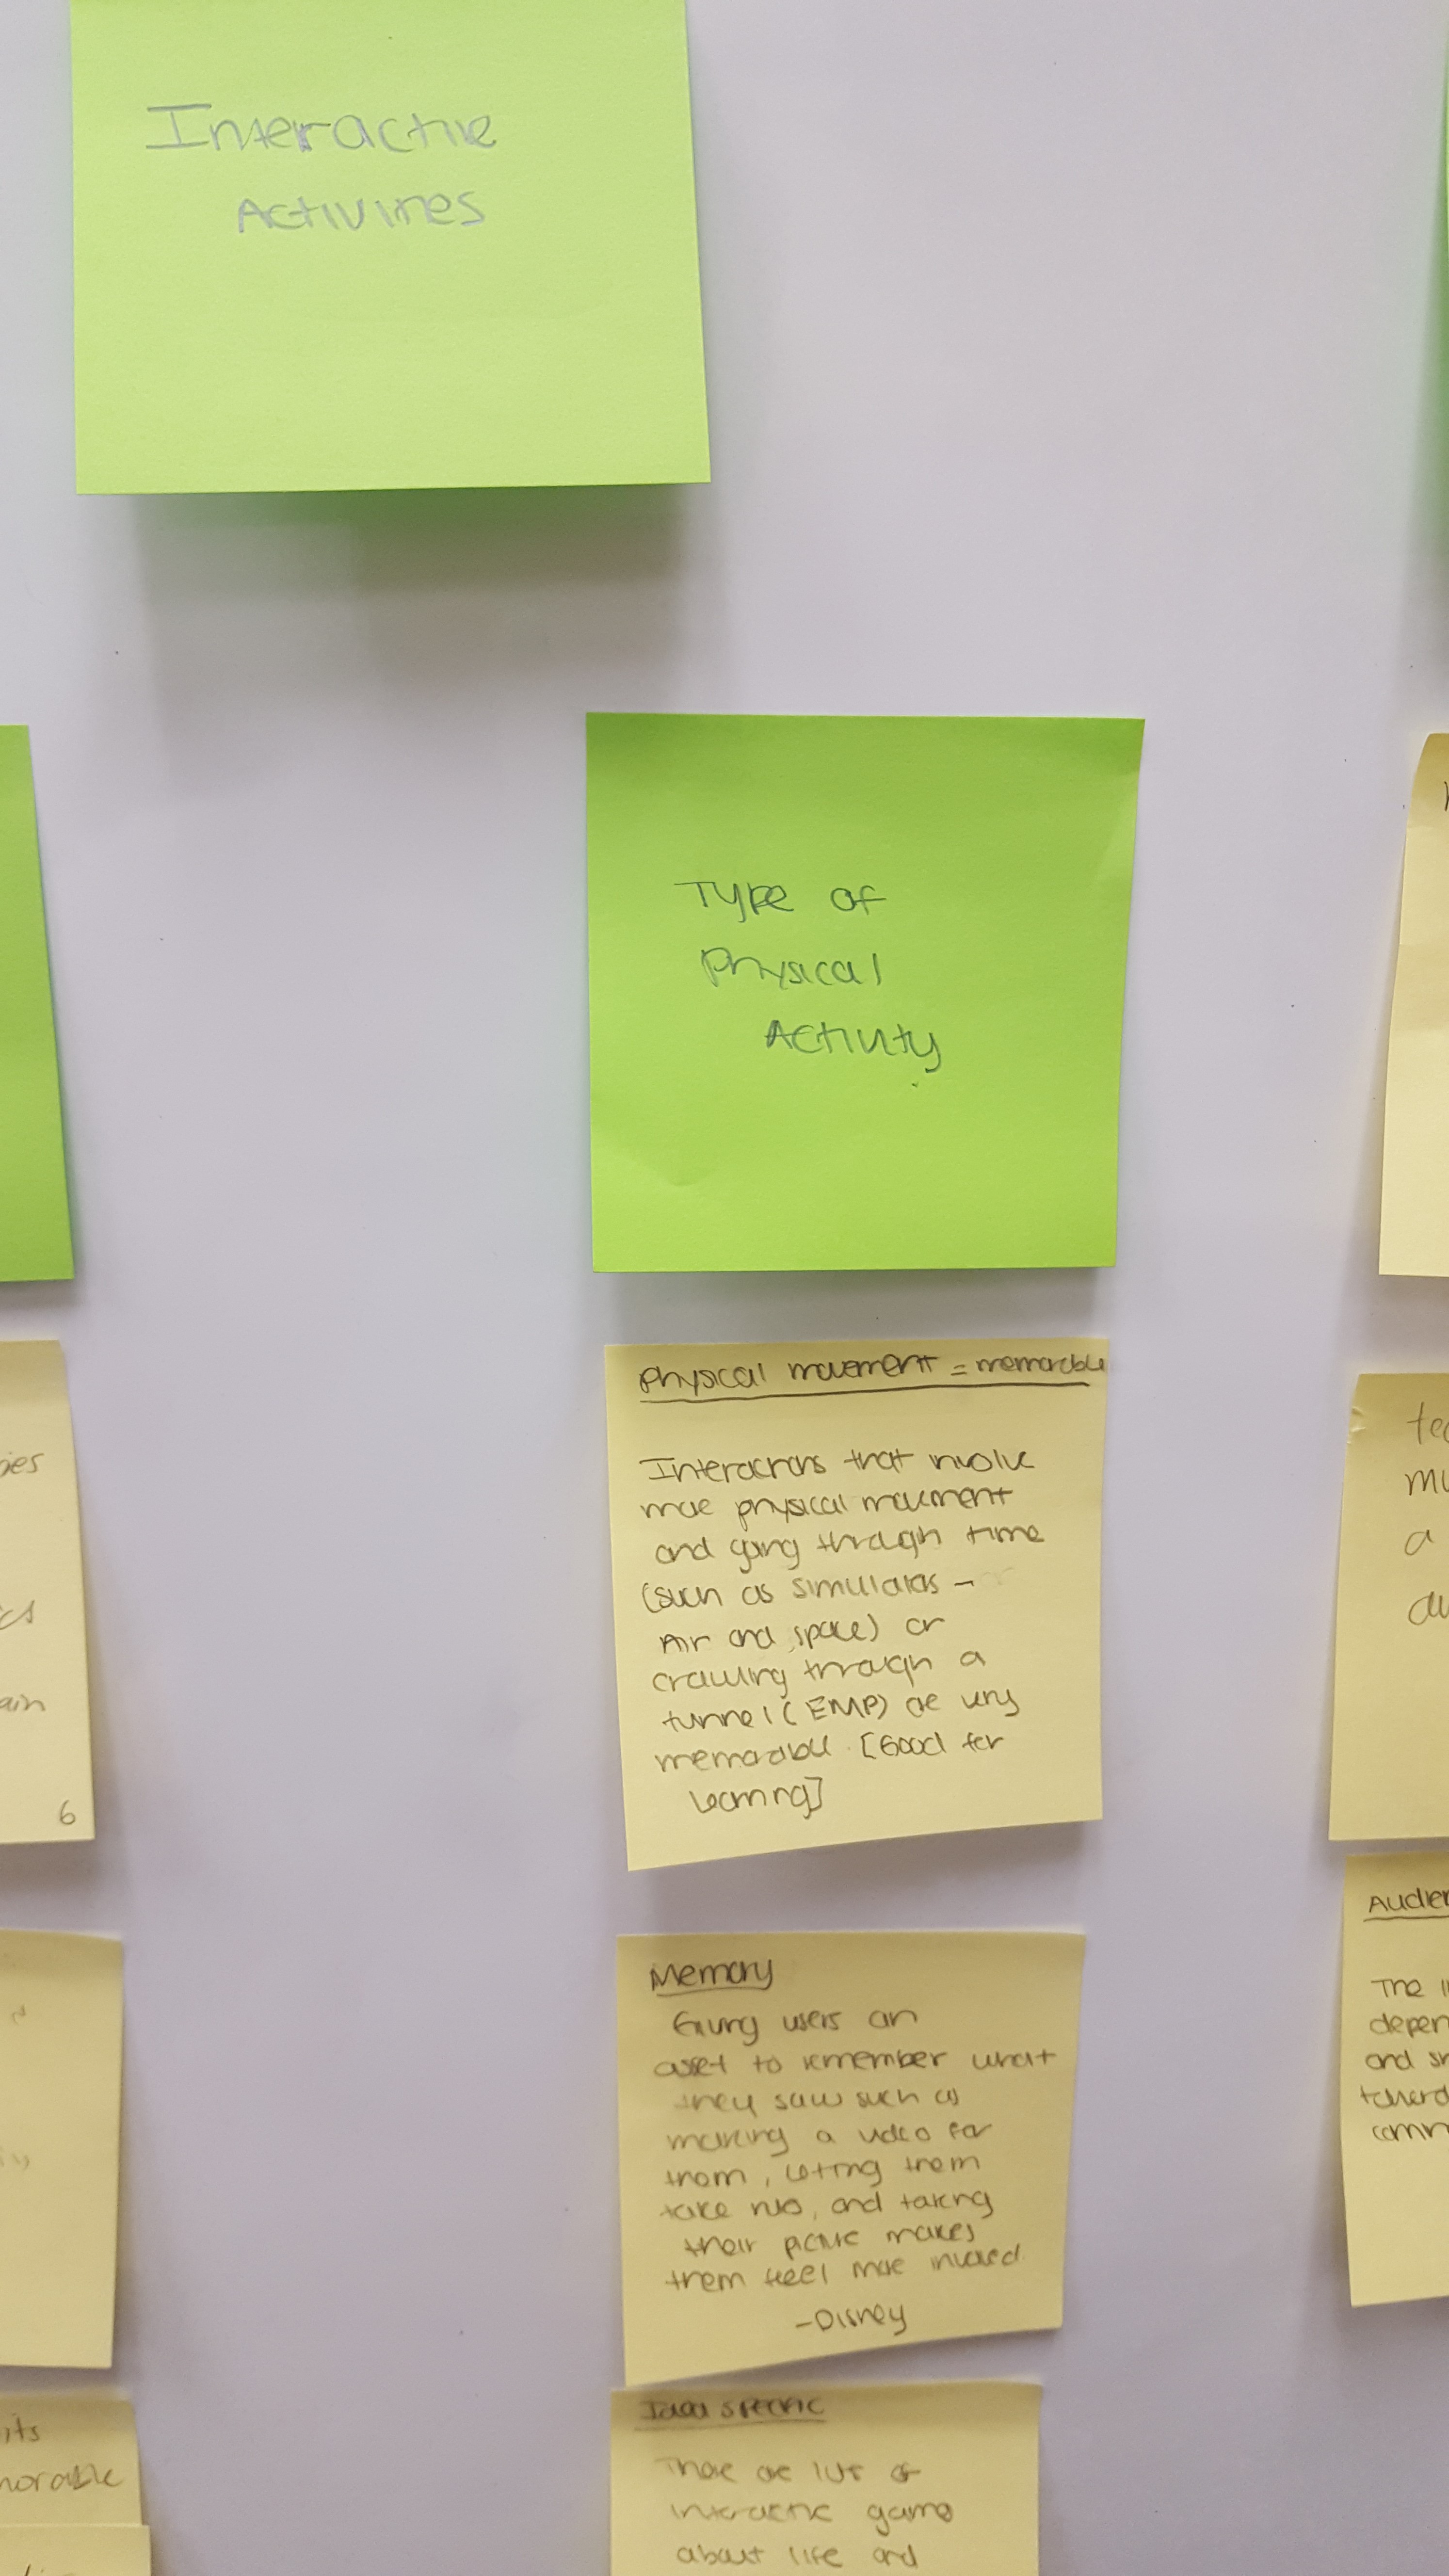 Interactive
Activities
Type of
Physical
Activity
Physical movement = memorable
Interactions that involve
more physical movement
and going through time
(such as simulators -
Air and space) or
crawling through a
tunnel (EMP) are very
memorable. [Good for
learning]
Memory
Giving users an
asset to remember what
they saw such as
making a video for
them, letting them
take and taking
their picture makes
them feel more involved
-Disney
Idea specific
There are lots of
interactive game
about life and
6
its
a
Audien
The
depen
and
comm